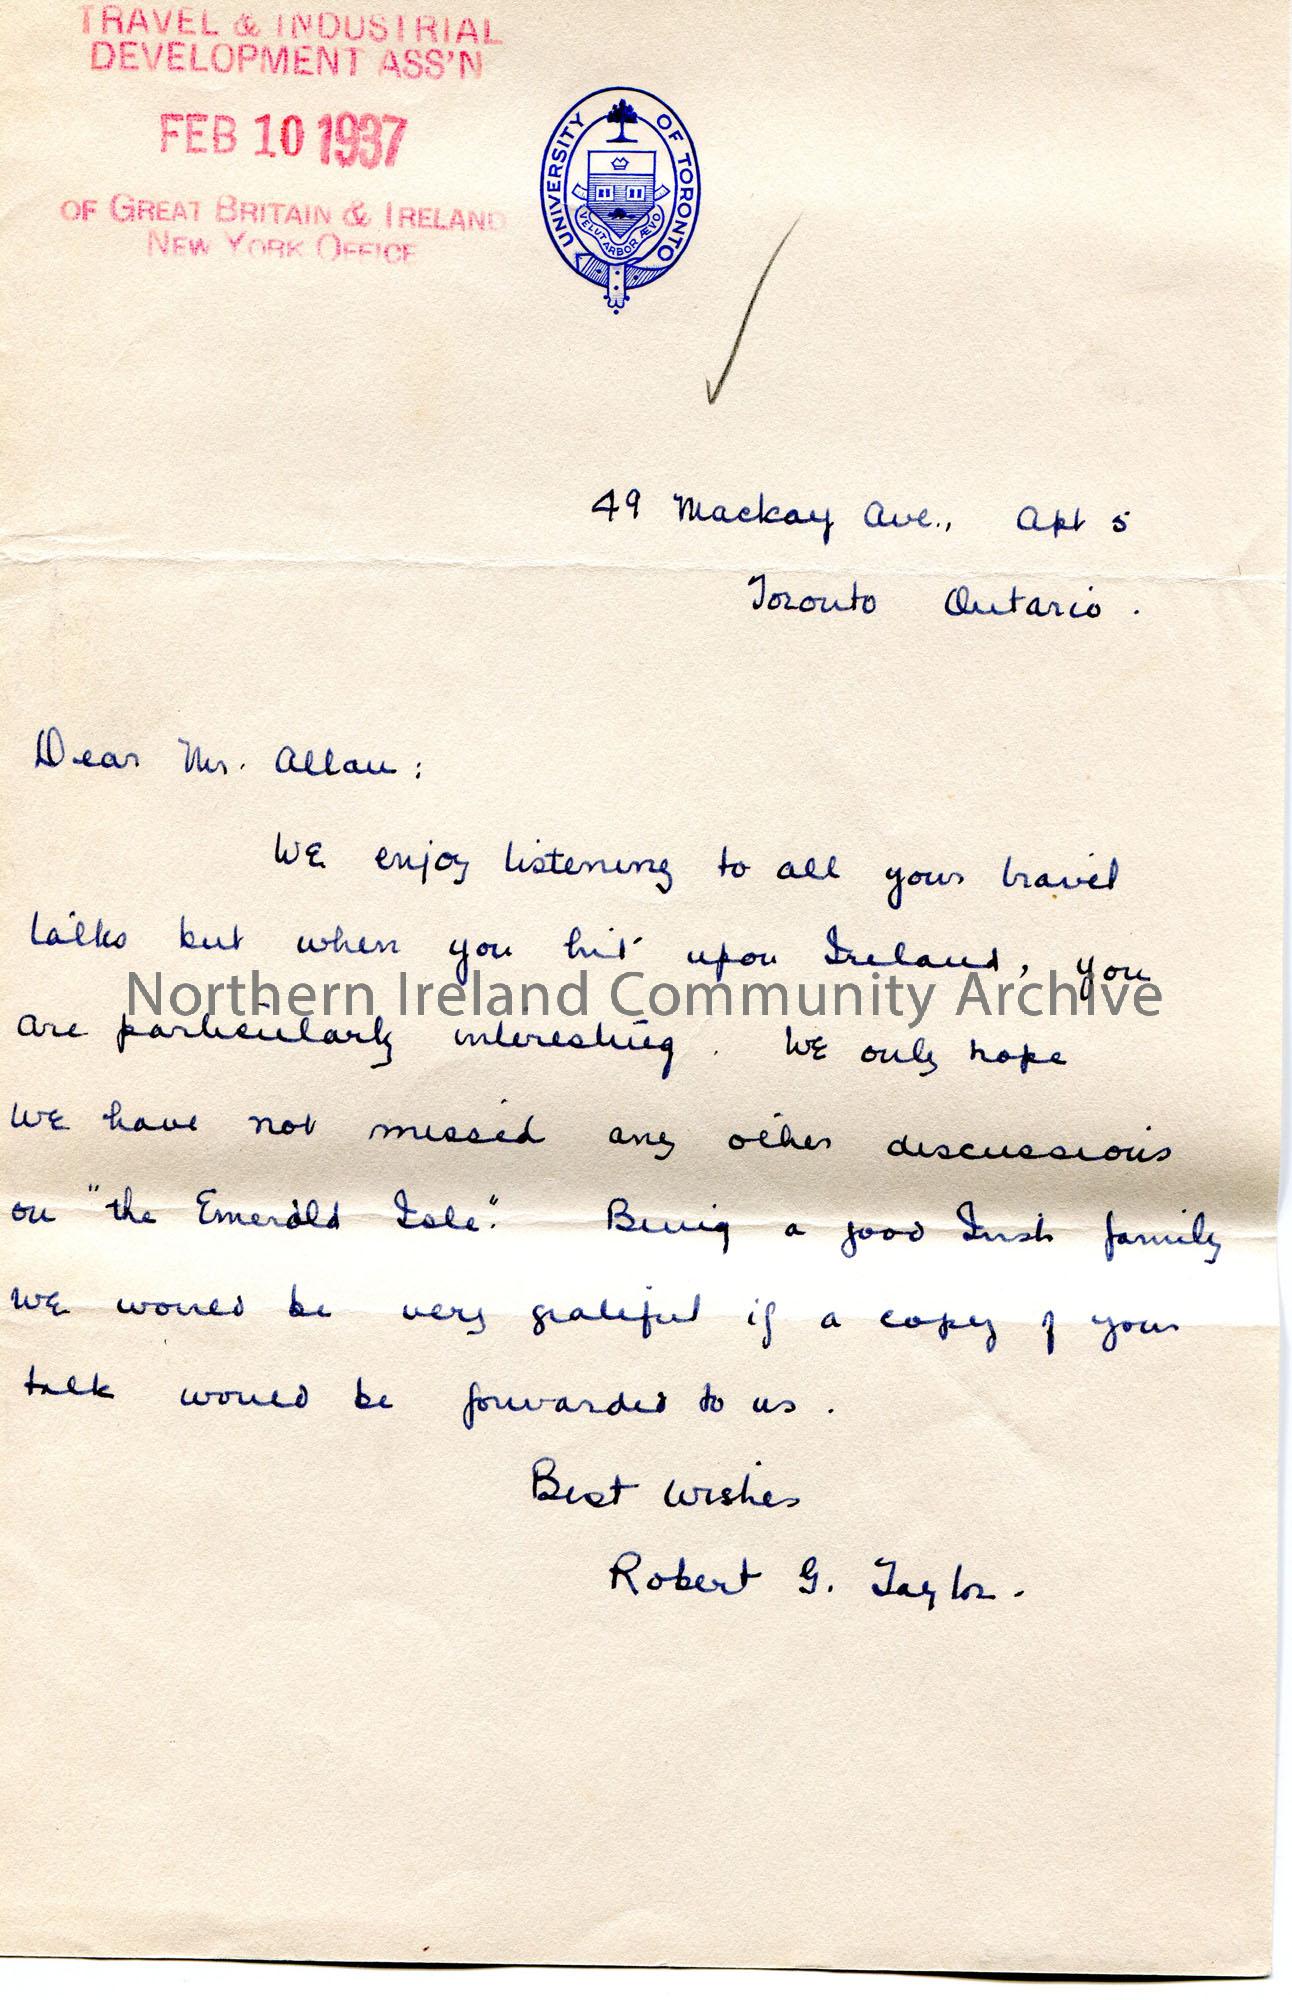 TRAVEL & INDUSTRIAL
DEVELOPMENT ASS'N
FEB 10 1937
OF GREAT BRITAIN & IRELAND
NEW YORK OFFICE
UNIVERSITY OF TORONTO
VELUT ARBOR ÆVO
49 Mackay Ave., Apt 5
Toronto Ontario.
Dear Mr. Allan:
We enjoy listening to all your travel
talks but when you hit upon Ireland, you
Northern Ireland Community Archive
are particularly interesting. We only hope
we have not missed any other discussions
on "the Emerald Isle". Being a good Irish family
we would be very grateful if a copy of your
talk would be forwarded to us.
Best Wishes
Robert G. Taylor.